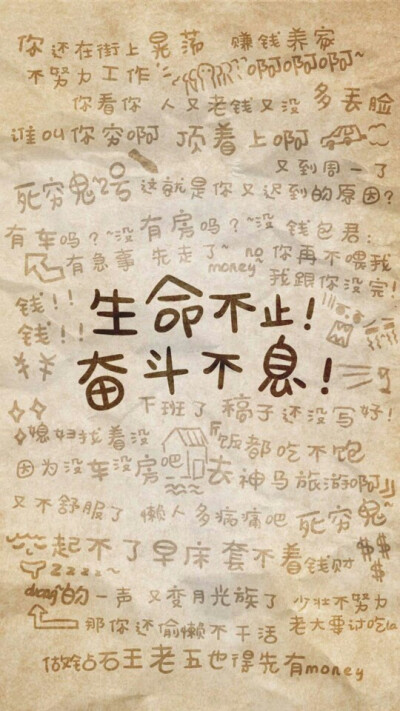 你还在街上晃荡 赚钱养家
不努力工作 啊啊啊啊~
你看你 人又老钱又没 多丢脸
谁叫你穷啊 顶着上啊
又到周一了
死穷鬼2号 这就是你又迟到的原因?
有车吗?~没有房吗?~没 钱包君:
有急事 先走了~ no money 你再不喂我
我跟你没完!
钱!!
钱!!
生命不止!
奋斗不息!
下班了 稿子还没写好!
媳妇找着没 饭都吃不饱
因为没车没房吧 去神马旅游啊
又不舒服了 懒人多病痛吧 死穷鬼~
起不了早床套不着钱财 $$$
zzzz~
duang的一声 又变月光族了 少壮不努力
那你还偷懒不干活 老大要讨吃la
做钻石王老五也得先有money